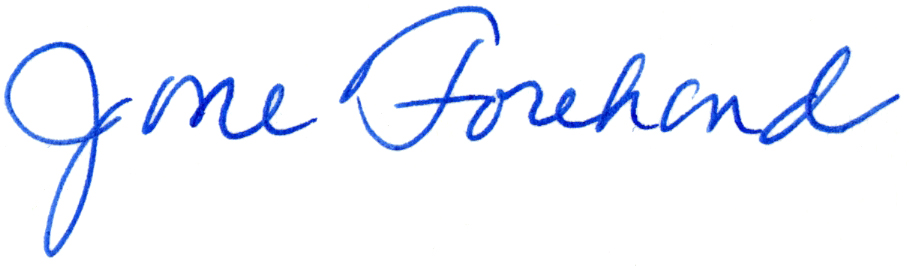 Jane Forehand